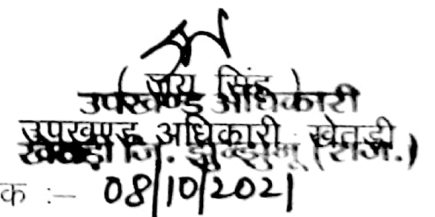 जय सिंह
उपखण्ड अधिकारी
उपखण्ड अधिकारी खेतड़ी
खेतड़ी जि. झुन्झुनू (राज.)
क :- 08/10/2021